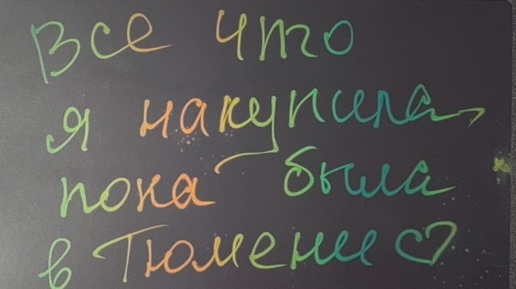 Все что
я накупила,
пока была
в Тюмени♡